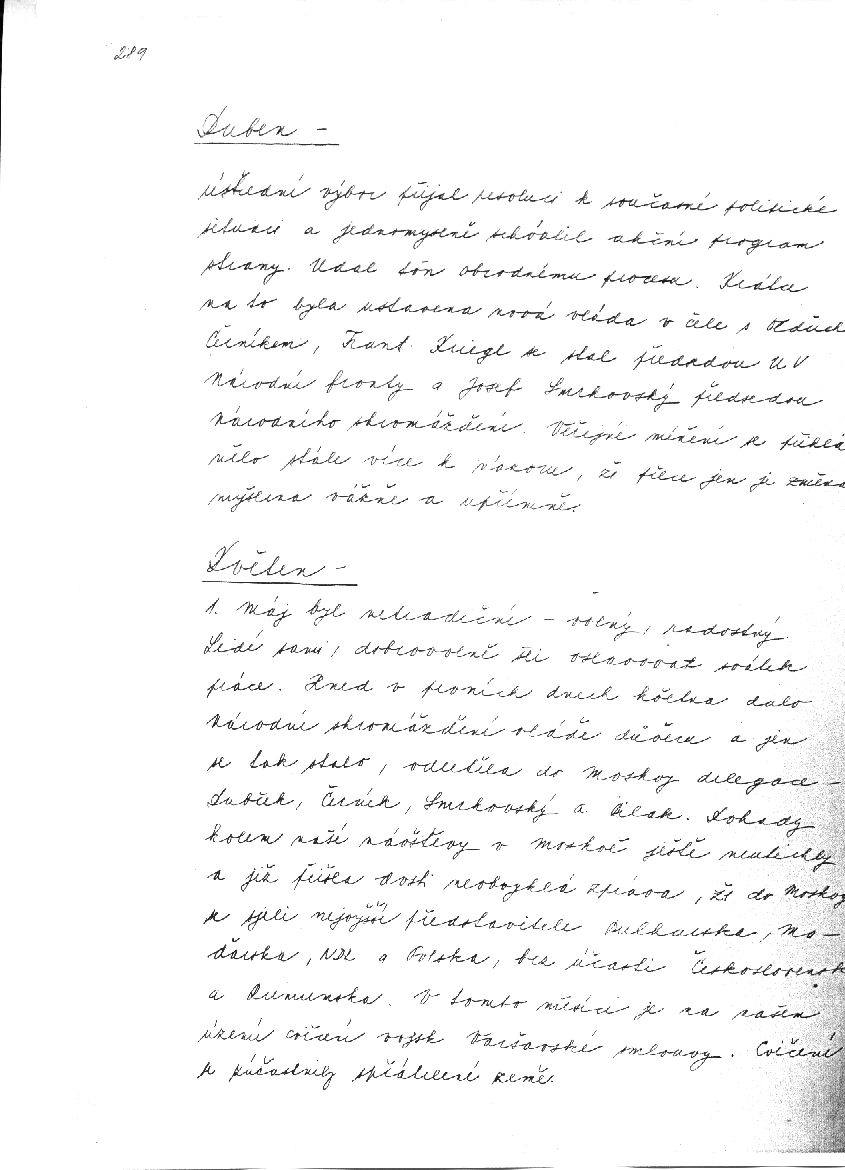 289
Duben -
ústřední výbor přijal resoluci k současné politické
situaci a jednomyslně schválil akční program
strany. Udal tón obrodnému procesu. Krátce
na to byla ustavena nová vláda v čele s Oldřich
Černíkem, Frant. Kriegl se stal předsedou ÚV
Národní fronty a Josef Smrkovský předsedou
Národního shromáždění. Veřejné mínění se přiklá
nělo stále více k názoru, že přece jen je změna
myšlena vážně a upřímně.
Květen -
1. Máj byl netradiční - volný, radostný.
Lidé sami, dobrovolně šli oslavovat svátek
práce. Hned v prvních dnech května dalo
Národní shromáždění vládě důvěru a jen
se tak stalo, odletěla do Moskvy delegace -
Dubček, Černík, Smrkovský a Bilak. Dohady
kolem naší návštěvy v Moskvě ještě neutichly
a již přišla dosti neobvyklá zpráva, že do Moskvy
se sjeli nejvyšší představitelé Bulharska, Ma-
ďarska, NDR a Polska, bez účasti Československ
a Rumunska. V tomto měsíci je na našem
území cvičení vojsk Varšavské smlouvy. Cvičení
se zúčastnily spřátelené země.